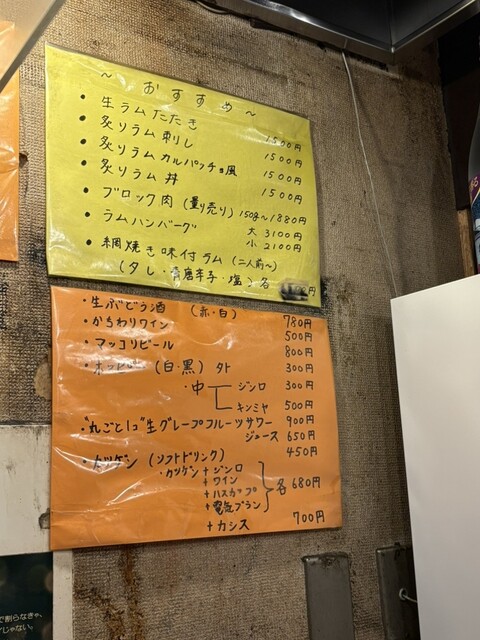 ～ おすすめ ～
・生ラムたたき 1500円
・炙りラム刺し 1500円
・炙りラムカルパッチョ風 1500円
・炙りラム丼 1500円
・ブロック肉(量り売り) 150g～1880円
・ラムハンバーグ 大 3100円
小 2100円
・網焼き味付ラム (二人前～)
(タレ・青唐辛子・塩) 各 円
・生ぶどう酒 (赤・白) 780円
・かちわりワイン 500円
・マッコリビール 800円
・ホッピー (白・黒) 外 300円
・中 ジンロ 300円
キンミヤ 500円
・"丸ごと1コ"生グレープフルーツサワー 900円
ジュース 650円
・カツゲン (ソフトドリンク) 450円
・カツゲン+ジンロ
+ワイン
+ハスカップ
+電気ブラン
各680円
+カシス 700円
で割らなきゃ、
じゃない。